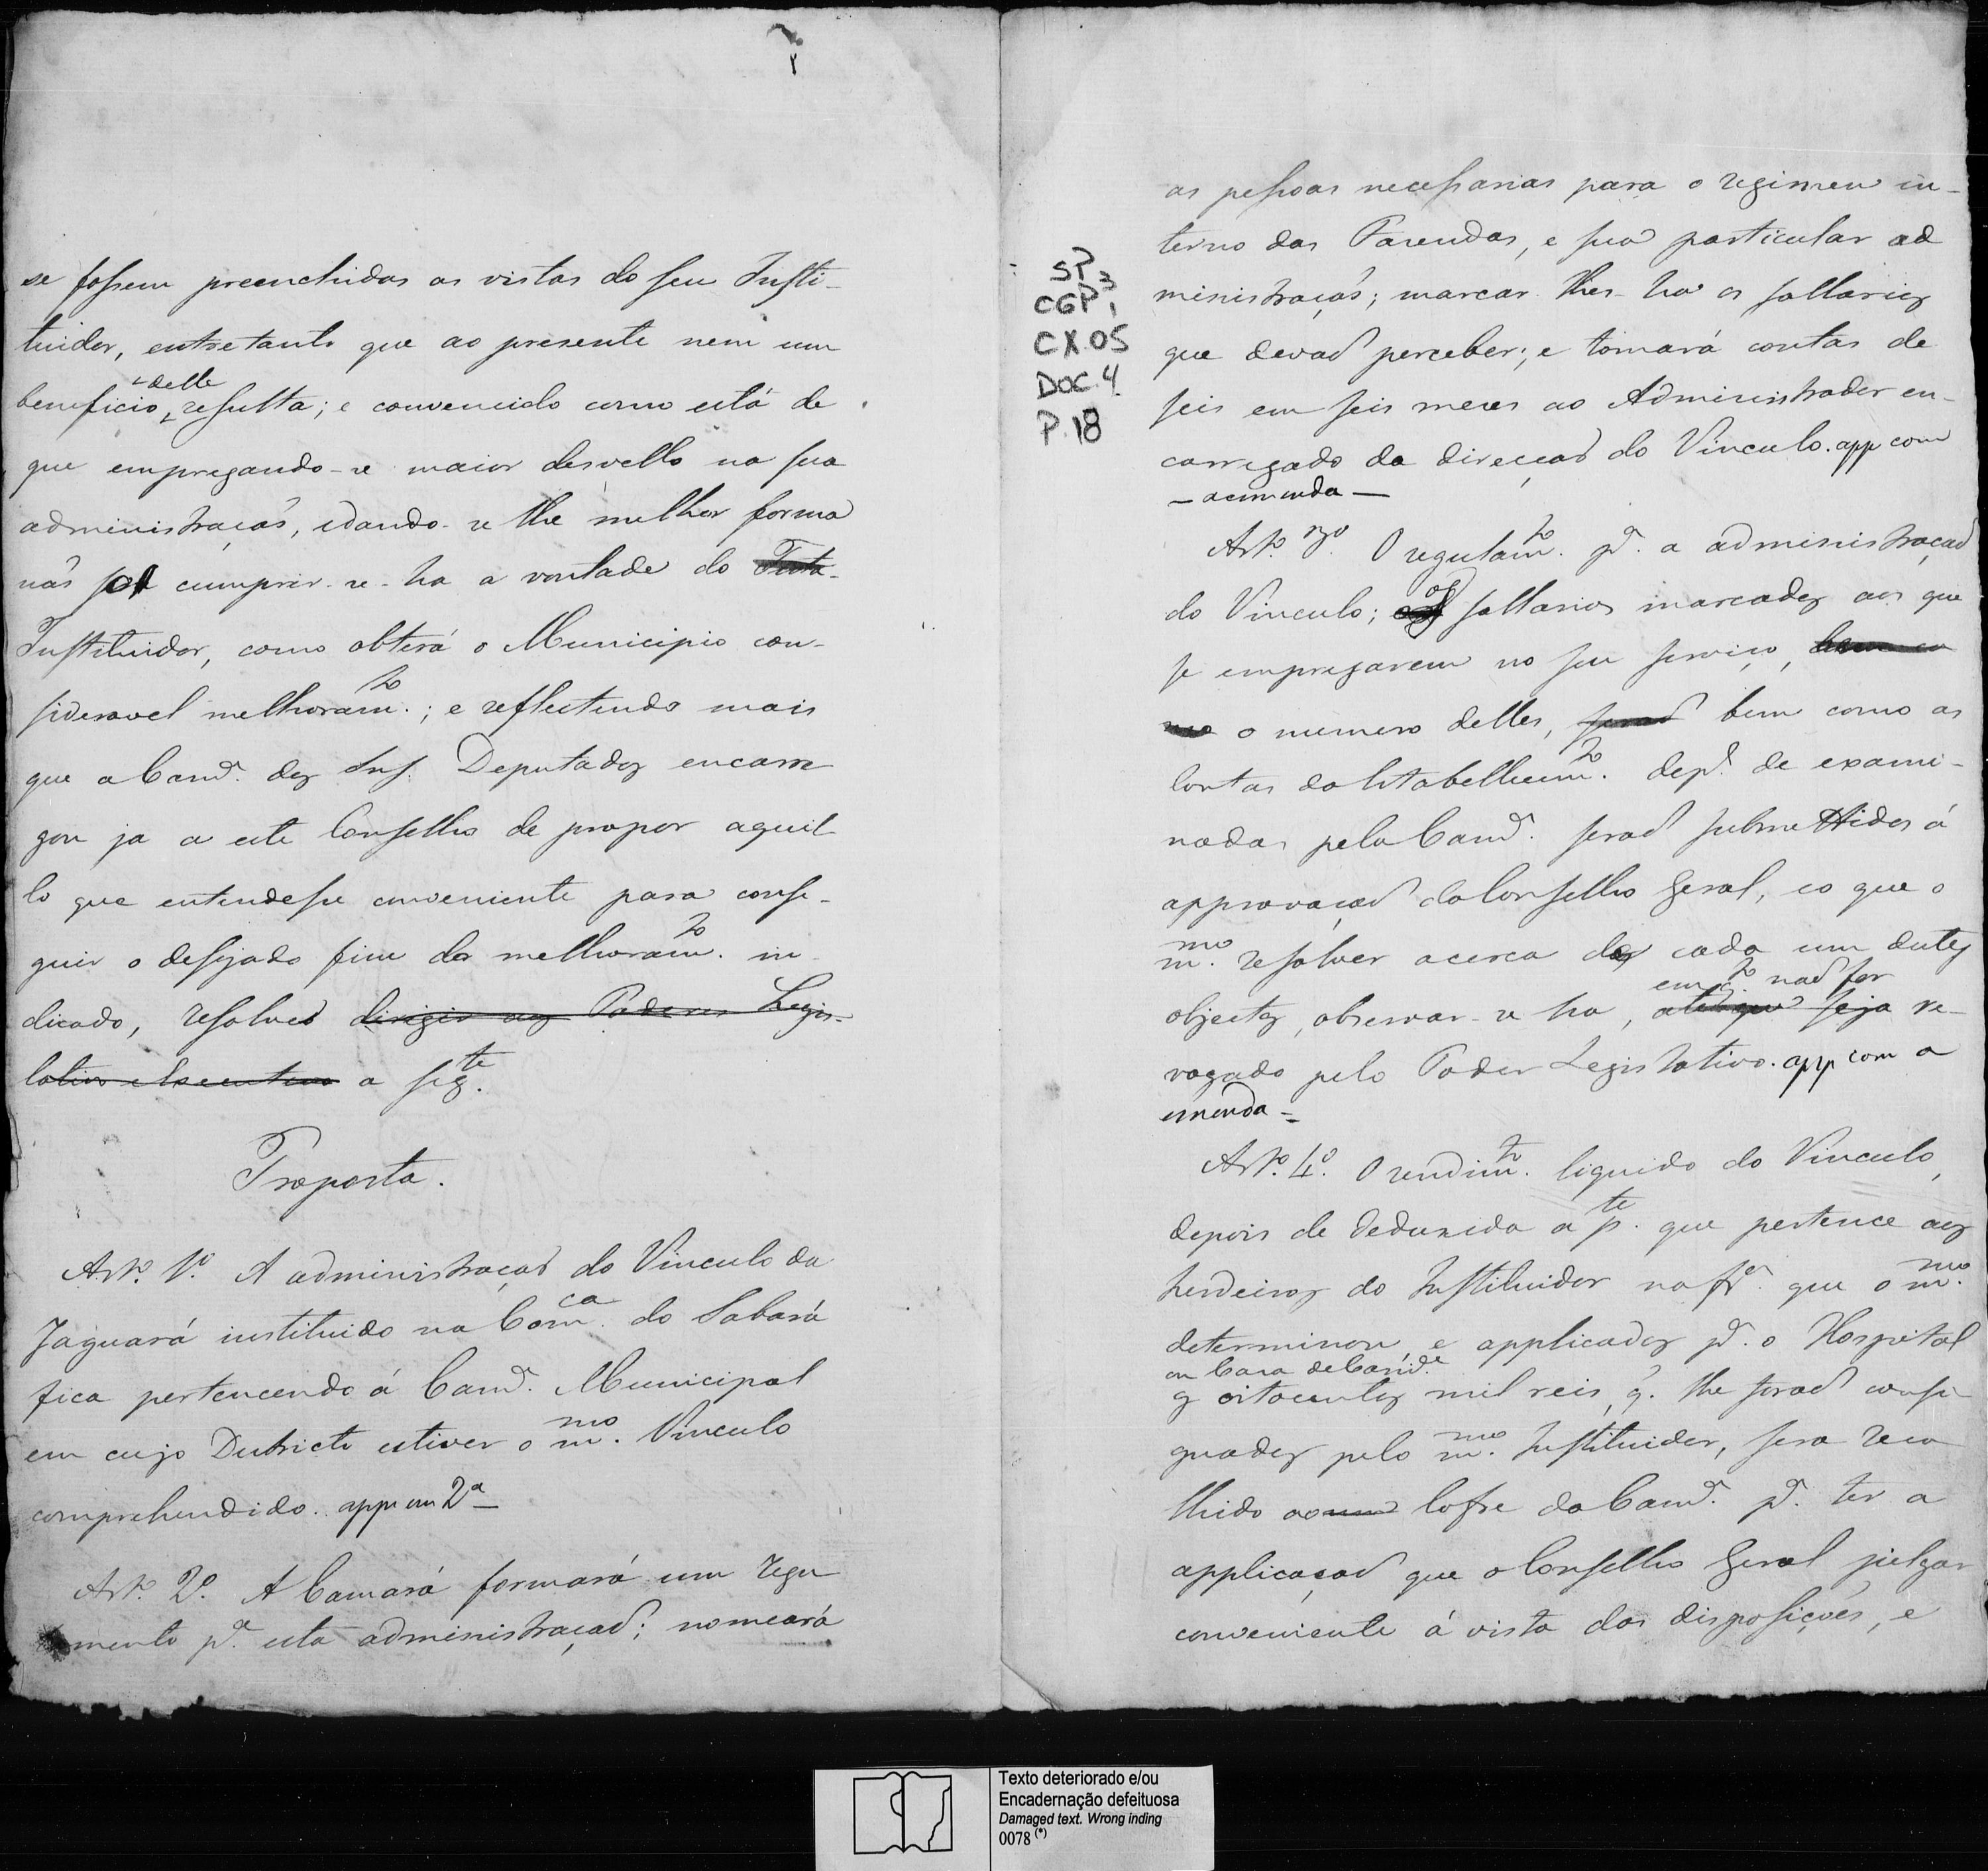 se fossem preenchidas as vistas do seu Insti-
tuidor, entretanto que ao presente nem um
beneficio delle resulta; e convencido como está de
que empregando-se maior desvello na sua
administração, e dando-se lhe melhor forma
não só cumprir-se-ha a vontade do Testa-
Instituidor, como obterá o Municipio con-
sideravel melhoramto.; e reflectindo mais
que a Camª. dos Snrs. Deputados encarre
gou ja a este Conselho de propor aquil
lo que entendesse conveniente para conse-
guir o desejado fim do melhoramto. in-
dicado, resolveo dirigir aos Poderes Legis-
lativo e Executivo a segte.
Proposta.
Arto. 1º. A administração do Vinculo da
Jaguará instituido na Comca. do Sabará
fica pertencendo á Camª. Municipal
em cujo Districto estiver o mmo. Vinculo
comprehendido. app em 2ª
Arto. 2º. A Camará formará um regu
lamento pª. esta administração; nomeará
SP
CGP 3
1
CX.05
DOC.4
P.18
as pessoas necessarias para o regimen in-
terno das Fazendas, e sua particular ad
ministração; marcar-lhes-ha os sallarios
que devaõ perceber; e tomará contas de
seis em seis mezes ao Administrador en-
carregado da direcçaõ do Vinculo. app com
- a emenda -
Arto. 3º. O regulamto. pª. a administraçaõ
do Vinculo; os sallarios marcados aos que
se empregarem no seu serviço, bem co
mo o numero delles, seraõ bem como as
Contas do Estabellecimto. depˢ. de exami-
nadas pela Camª. seraõ submettidos á
approvaçaõ do Conselho Geral, e o que o
mmo. resolver acerca de cada um destes
objectos, observar-se-ha, emqto. naõ for
até que seja re-
vogado pelo Poder Legislativo. app com a
emenda -
Arto. 4º. O rendimto. liquido do Vinculo,
depois de deduzida a pte. que pertence aos
herdeiros do Instituidor na fª. que o mmo.
determinou e applicados pª. o Hospital
ou Casa de Caride.
os oitocentos mil reis, q. lhe foraõ consi
gnados pelo mmo. Instituidor, sera reco
lhido ao Cofre da Camª. pª. ter a
applicaçaõ que o Conselho Geral julgar
conveniente á vista das disposições, e
Texto deteriorado e/ou
Encadernação defeituosa
Damaged text. Wrong inding
0078 (*)